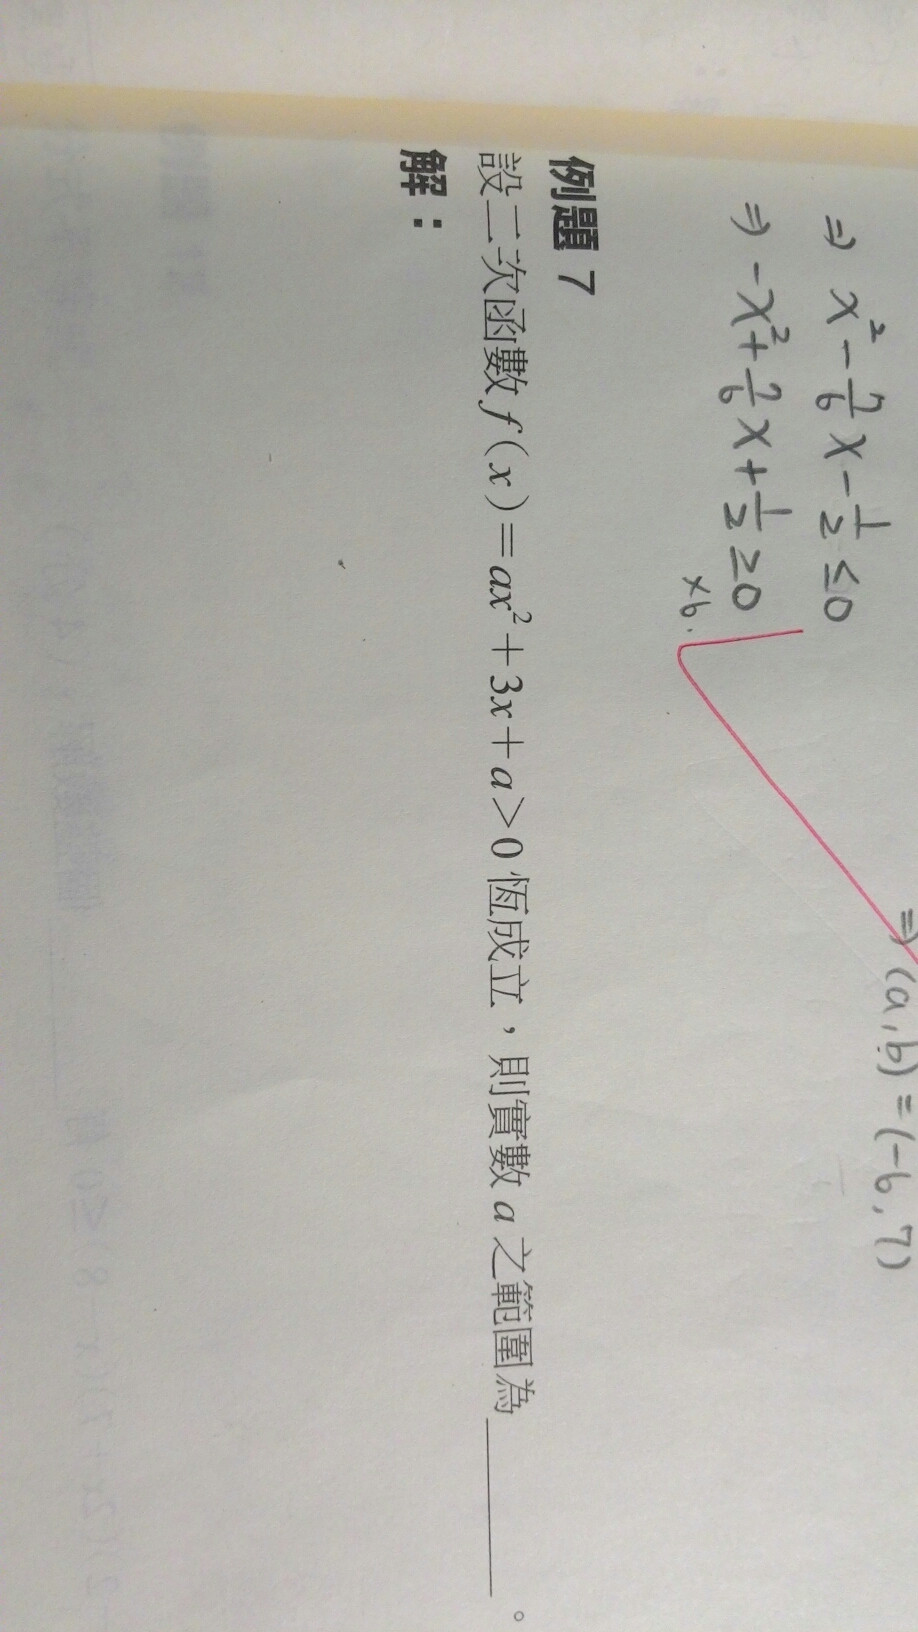 ⇒ (a,b)=(-6,7)
⇒ x²-7/6x-1/2≤0
⇒ -x²+7/6x+1/2≥0
×6.
例題 7
設二次函數 f(x)=ax²+3x+a>0 恆成立，則實數 a 之範圍為________。
解：